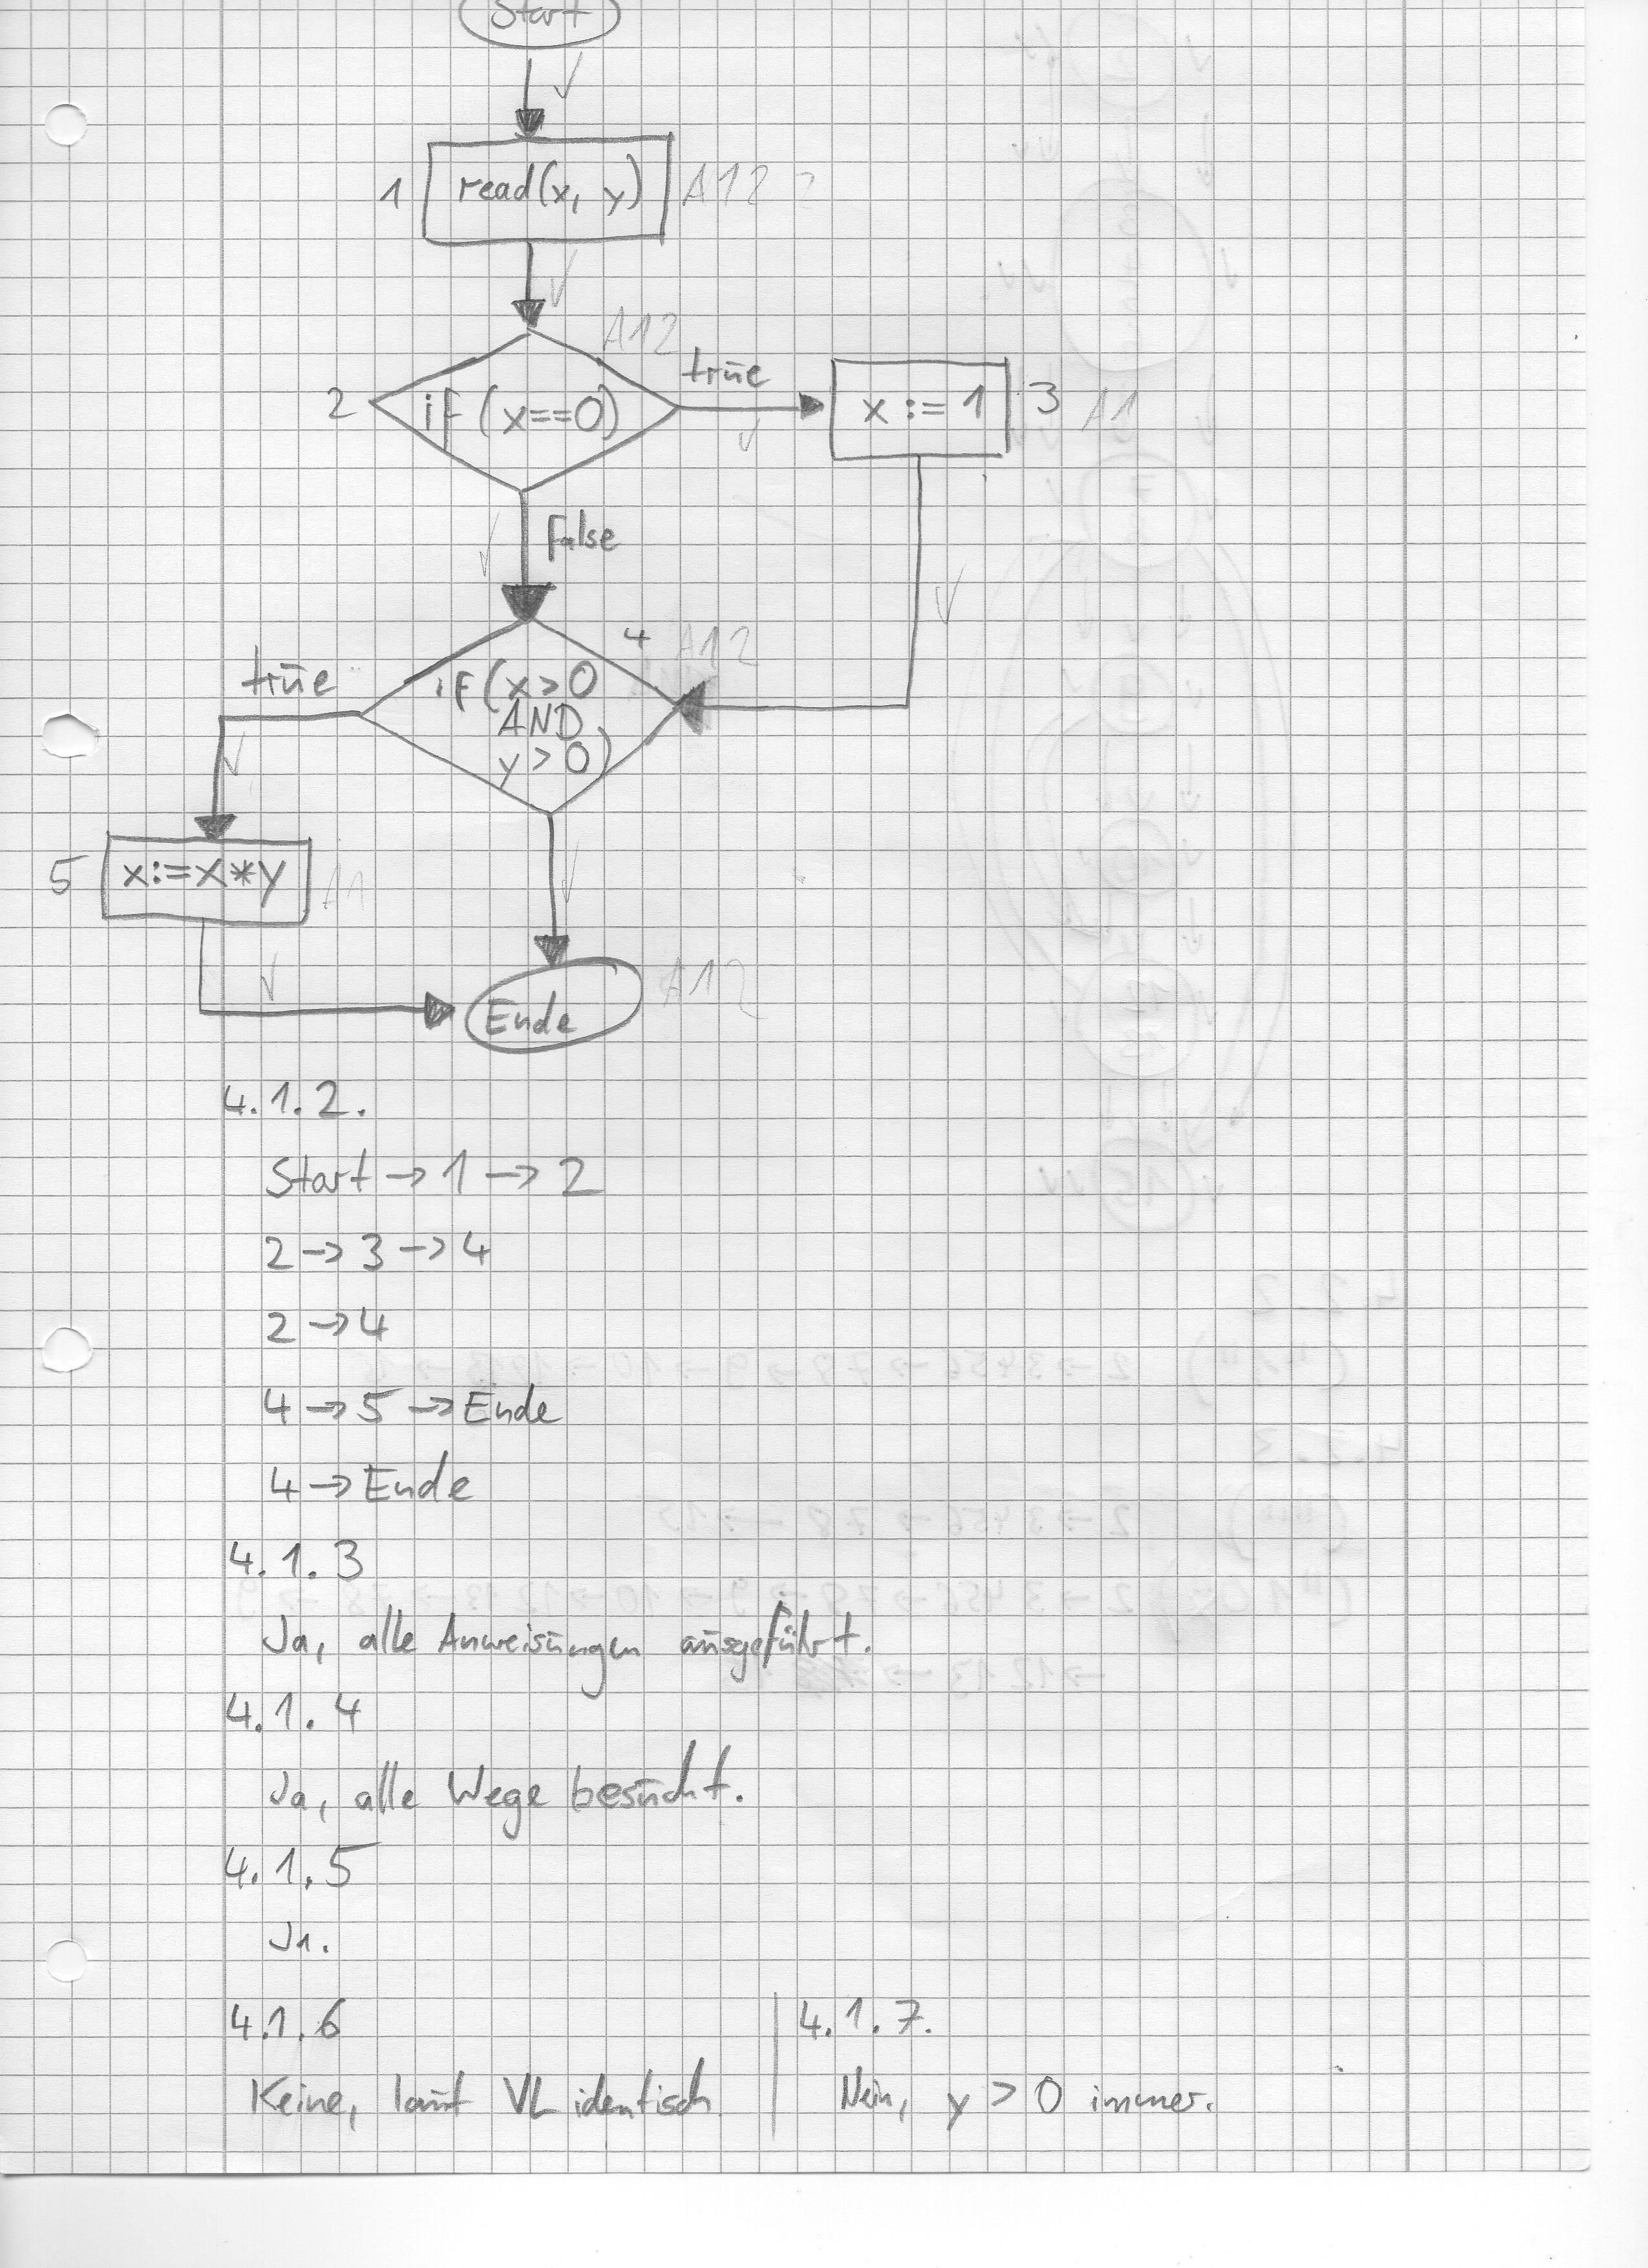 Start
1 read(x, y) A12
A12
true
2 if (x==0) x := 1 3 A1
false
4 A12
true if (x>0
AND
y>0)
5 x:=x*y A1
Ende A12
4.1.2.
Start → 1 → 2
2 → 3 → 4
2 → 4
4 → 5 → Ende
4 → Ende
4.1.3
Ja, alle Anweisungen ausgeführt.
4.1.4
Ja, alle Wege besucht.
4.1.5
Ja.
4.1.6
Keine, laut VL identisch
4.1.7.
Nein, y > 0 immer.